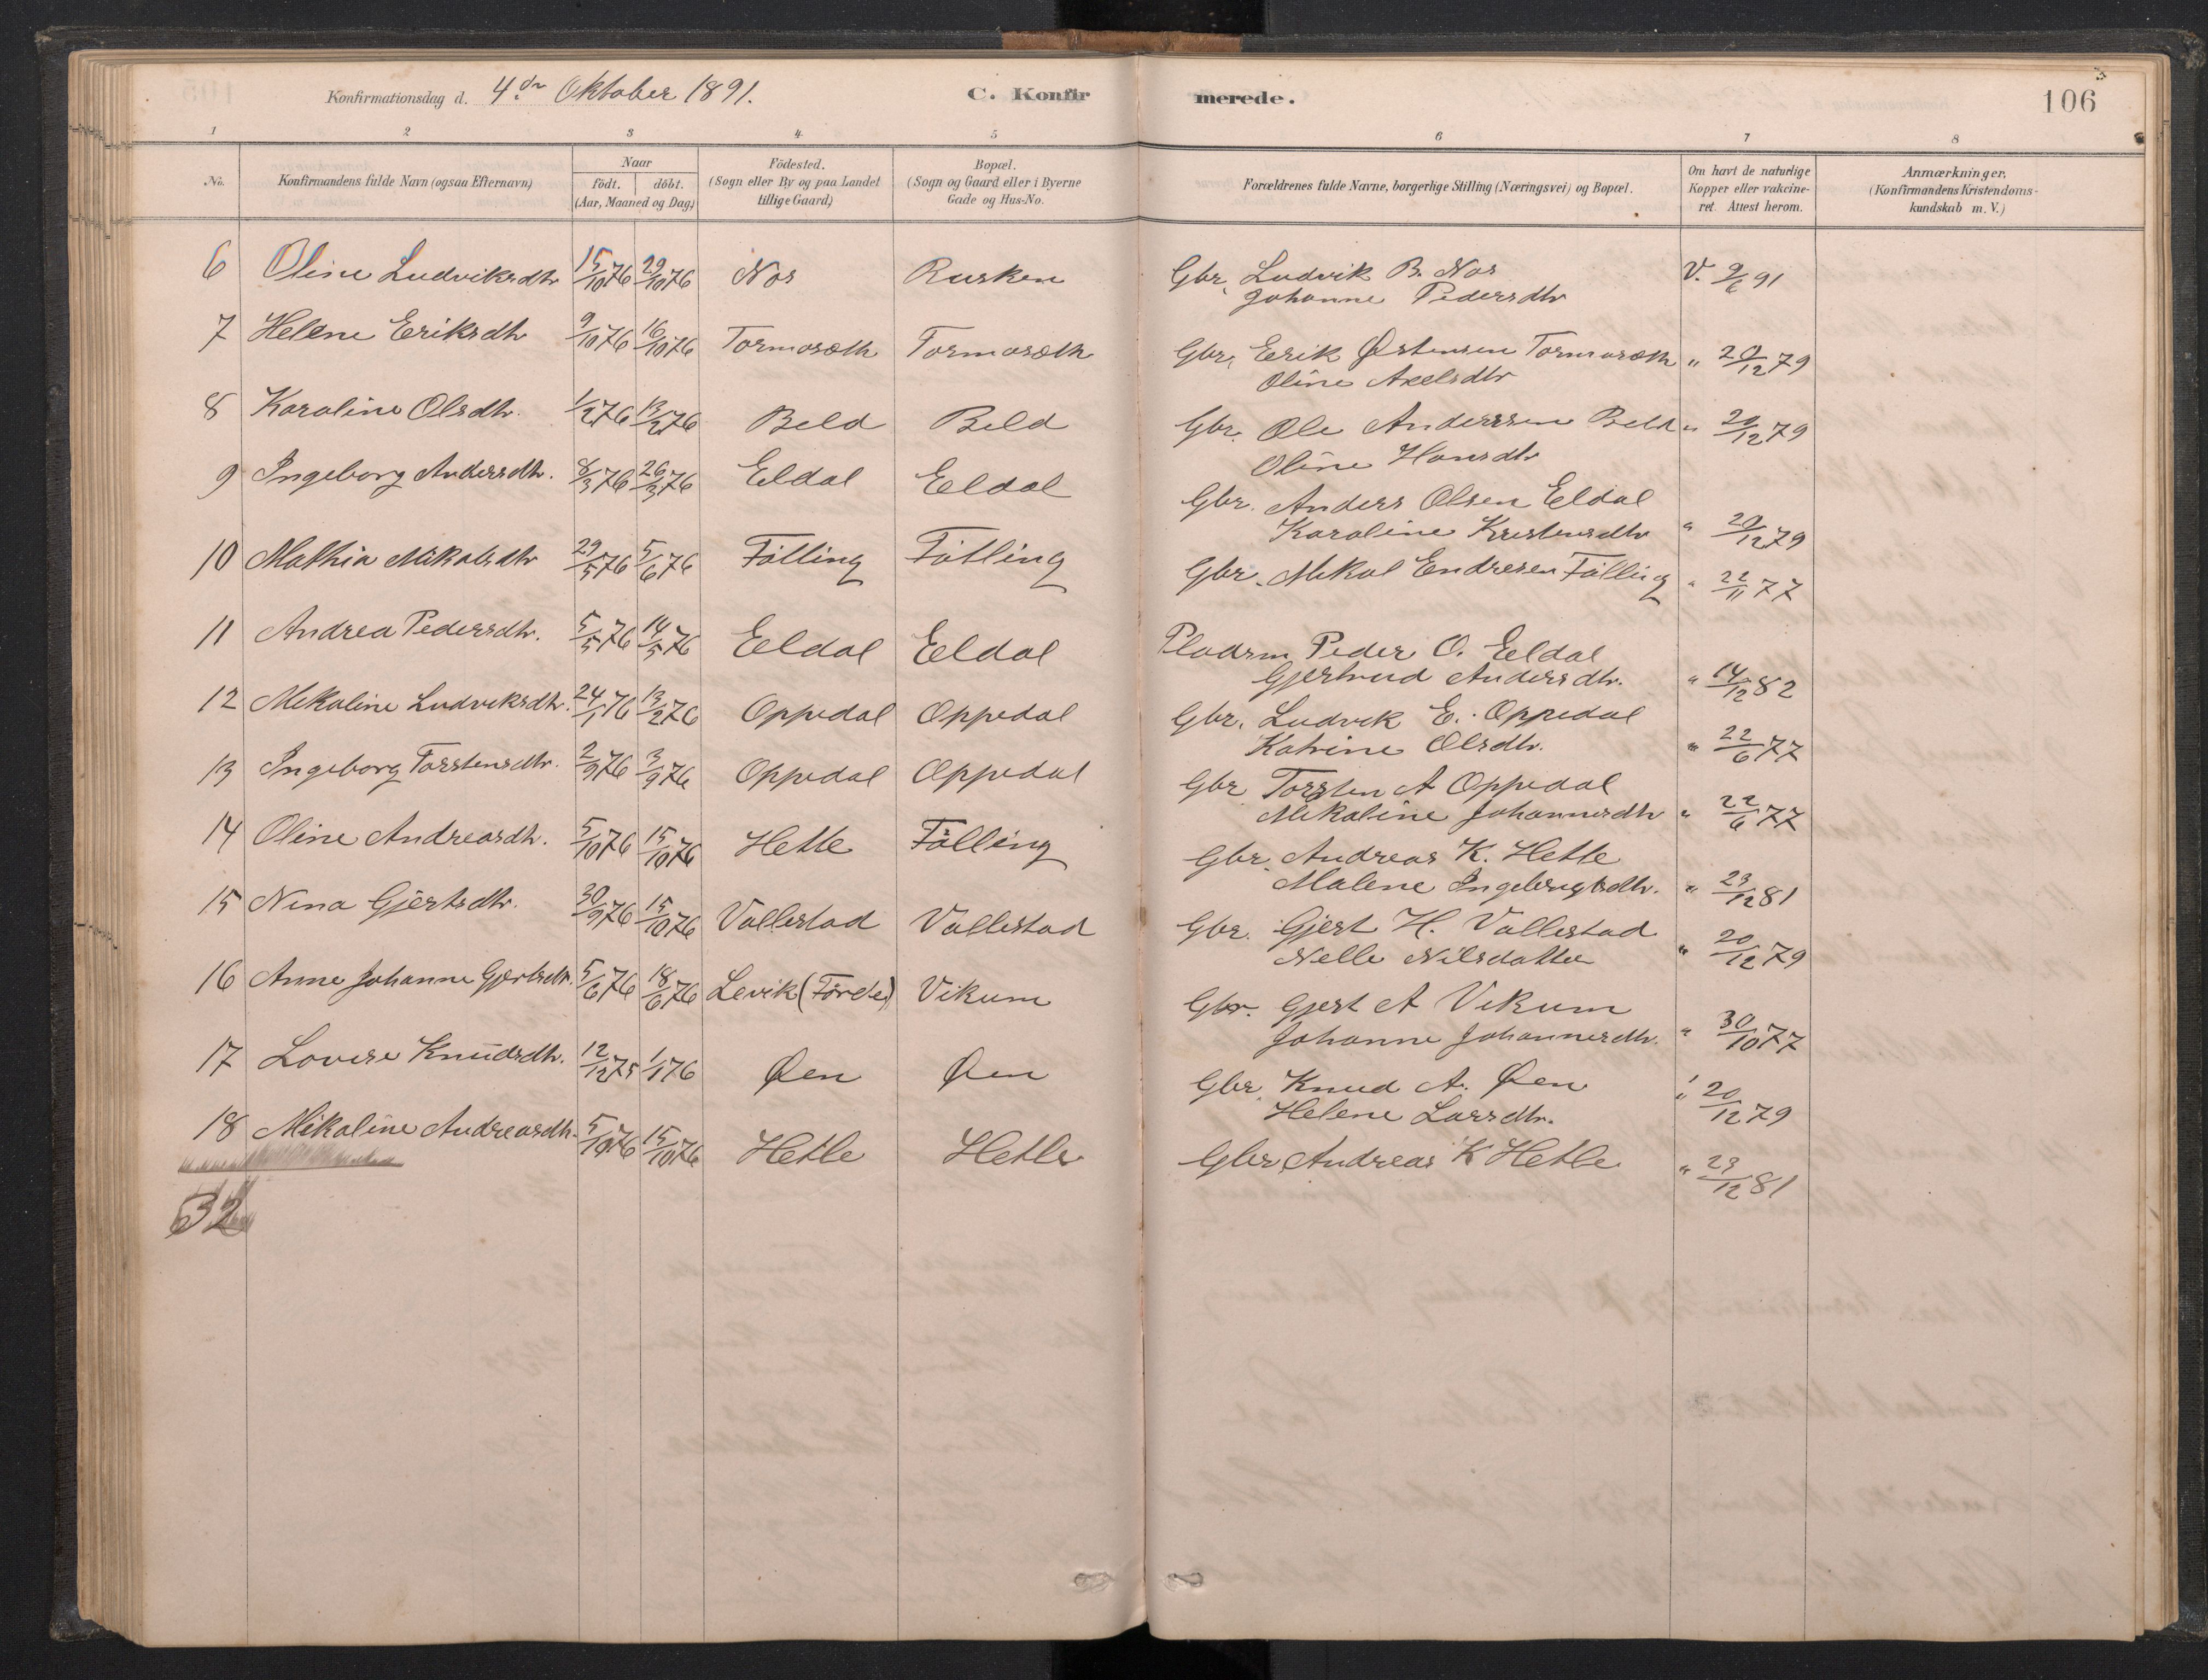 Konfirmationsdag d. 4de Oktober 1891. C. Konfirmerede. 106
1 2 3 4 5 6 7 8
No. Konfirmandens fulde Navn (ogsaa Efternavn) Naar födt. döbt. (Aar, Maaned og Dag) Födested. (Sogn eller By og paa Landet tillige Gaard) Bopæl. (Sogn og Gaard eller i Byerne Gade og Hus-No. Forældrenes fulde Navne, borgerlige Stilling (Næringsvei) og Bopæl. Om havt de naturlige Kopper eller vakcineret. Attest herom. Anmærkninger. (Konfirmandens Kristendomskundskab m.V.)
6 Oline Ludviksdtr 15/10 76 29/10 76 Nos Rusken Gbr. Ludvik B. Nos V. 9/6 91
Johanne Pedersdtr
7 Helene Eriksdtr 9/10 76 16/10 76 Tormosæth Tormosæth Gbr. Erik Østensen Tormosæth " 20/12 79
Oline Axelsdtr
8 Karoline Olsdtr. 1/2 76 13/2 76 Beld Beld Gbr. Ole Anderssen Beld " 20/12 79
Oline Hansdtr
9 Ingeborg Andersdtr. 8/3 76 26/3 76 Eldal Eeldal Gbr. Anders Olsen Eldal
Karoline Kristensdtr " 20/12 79
10 Mathia Mikalsdtr 29/5 76 5/6 76 Fölling Fölling Gbr. Mikal Endresen Fölling " 22/11 77
11 Andrea Pedersdtr. 5/5 76 14/5 76 Eeldal Eeldal Pladsm Peder O. Eeldal
Gjertrud Andersdtr. " 14/12 82
12 Mikaline Ludviksdtr. 24/1 76 13/2 76 Oppedal Oppedal Gbr. Ludvik E. Oppedal
Katrine Olsdtr. " 22/6 77
13 Ingeborg Torstensdtr. 2/9 76 3/9 76 Oppedal Oppedal Gbr Torsten A Oppedal
Mikaline Johannesdtr " 22/6 77
14 Oline Andreasdtr. 5/10 76 15/10 76 Hetle Fölling Gbr. Andreas K. Hetle
Malene Ingebrigtsdtr. " 23/12 81
15 Nina Gjertsdtr. 30/9 76 15/10 76 Vallestad Vallestad Gbr. Gjert H. Vallestad
Nelle Nilsdatter " 20/12 79
16 Anne Johanne Gjertsdtr. 5/6 76 18/6 76 Levik (Förde) Vikum Gbr. Gjert A Vikum
Johanne Johannesdtr. " 30/10 77
17 Lovise Knudsdtr. 12/12 75 1/1 76 Øen Øen Gbr. Knud A. Øen " 20/12 79
Helene Larsdtr.
18 Mikaline Andreasdtr. 5/10 76 15/10 76 Hetle Hetle Gbr Andreas K Hetle " 23/12 81
32